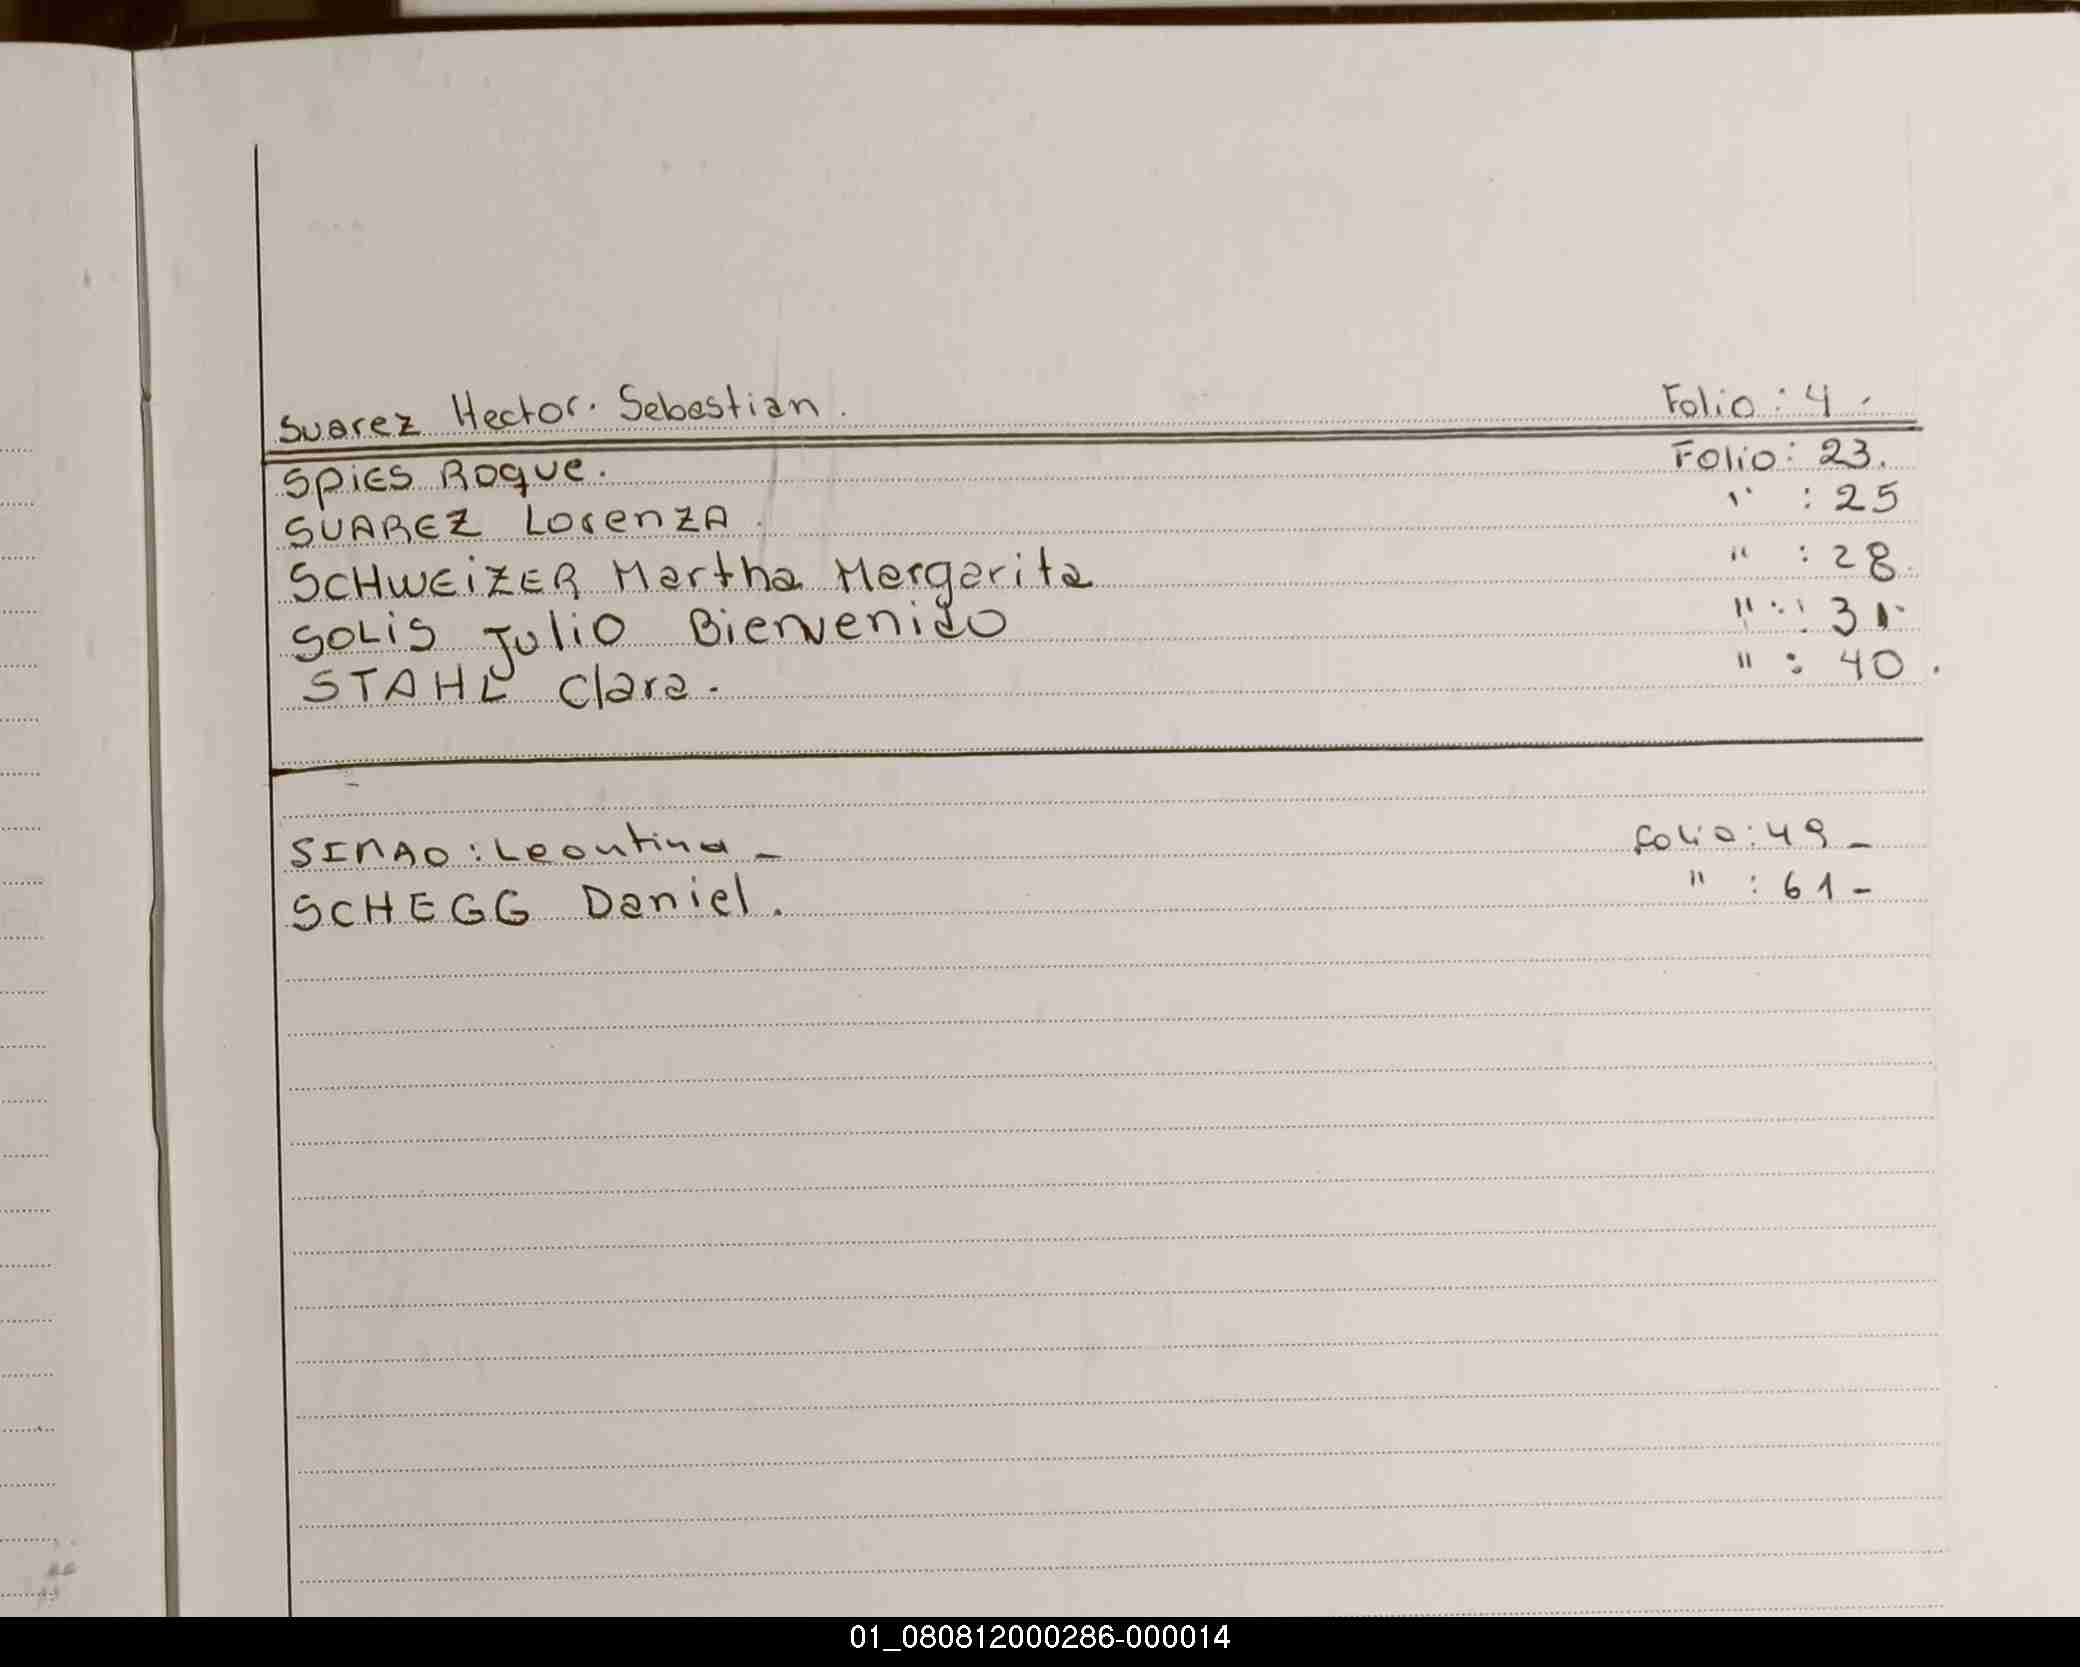 Suarez Hector. Sebastian. Folio: 4.
SPiES Roque. Folio: 23.
SUAREZ LorenzA. " : 25
SCHWEiZER Martha Margarita " : 28.
SOLiS Julio Bienvenido " : 31.
STAHL Clara. " : 40.
SIMAO: Leontina - folio: 49 -
SCHEGG Daniel. " : 61 -
01_080812000286-000014